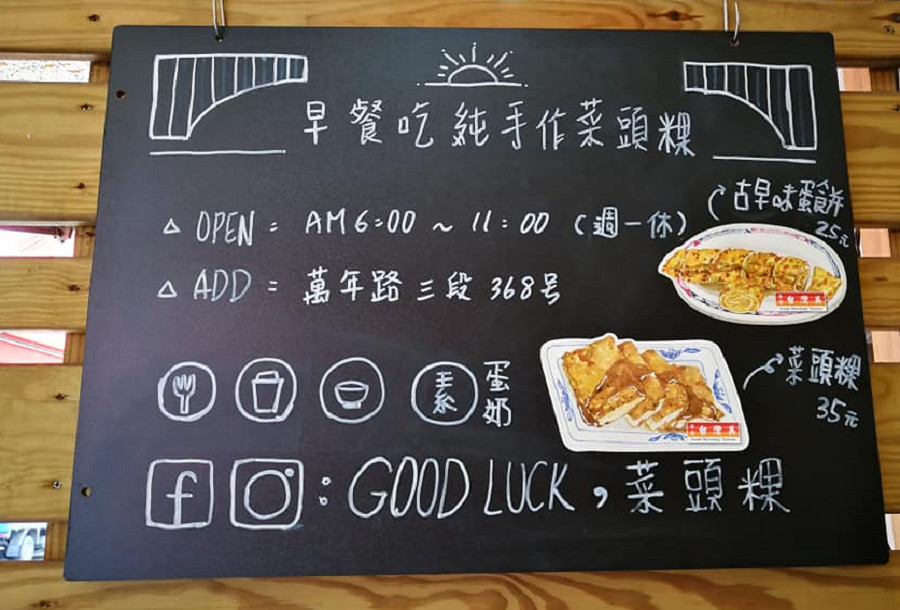 早餐吃純手作菜頭粿
古早味蛋餅
25元
△ OPEN = AM 6:00 ~ 11:00 (週一休)
△ ADD = 萬年路三段 368号
菜頭粿
35元
素 蛋奶
f : GOOD LUCK, 菜頭粿